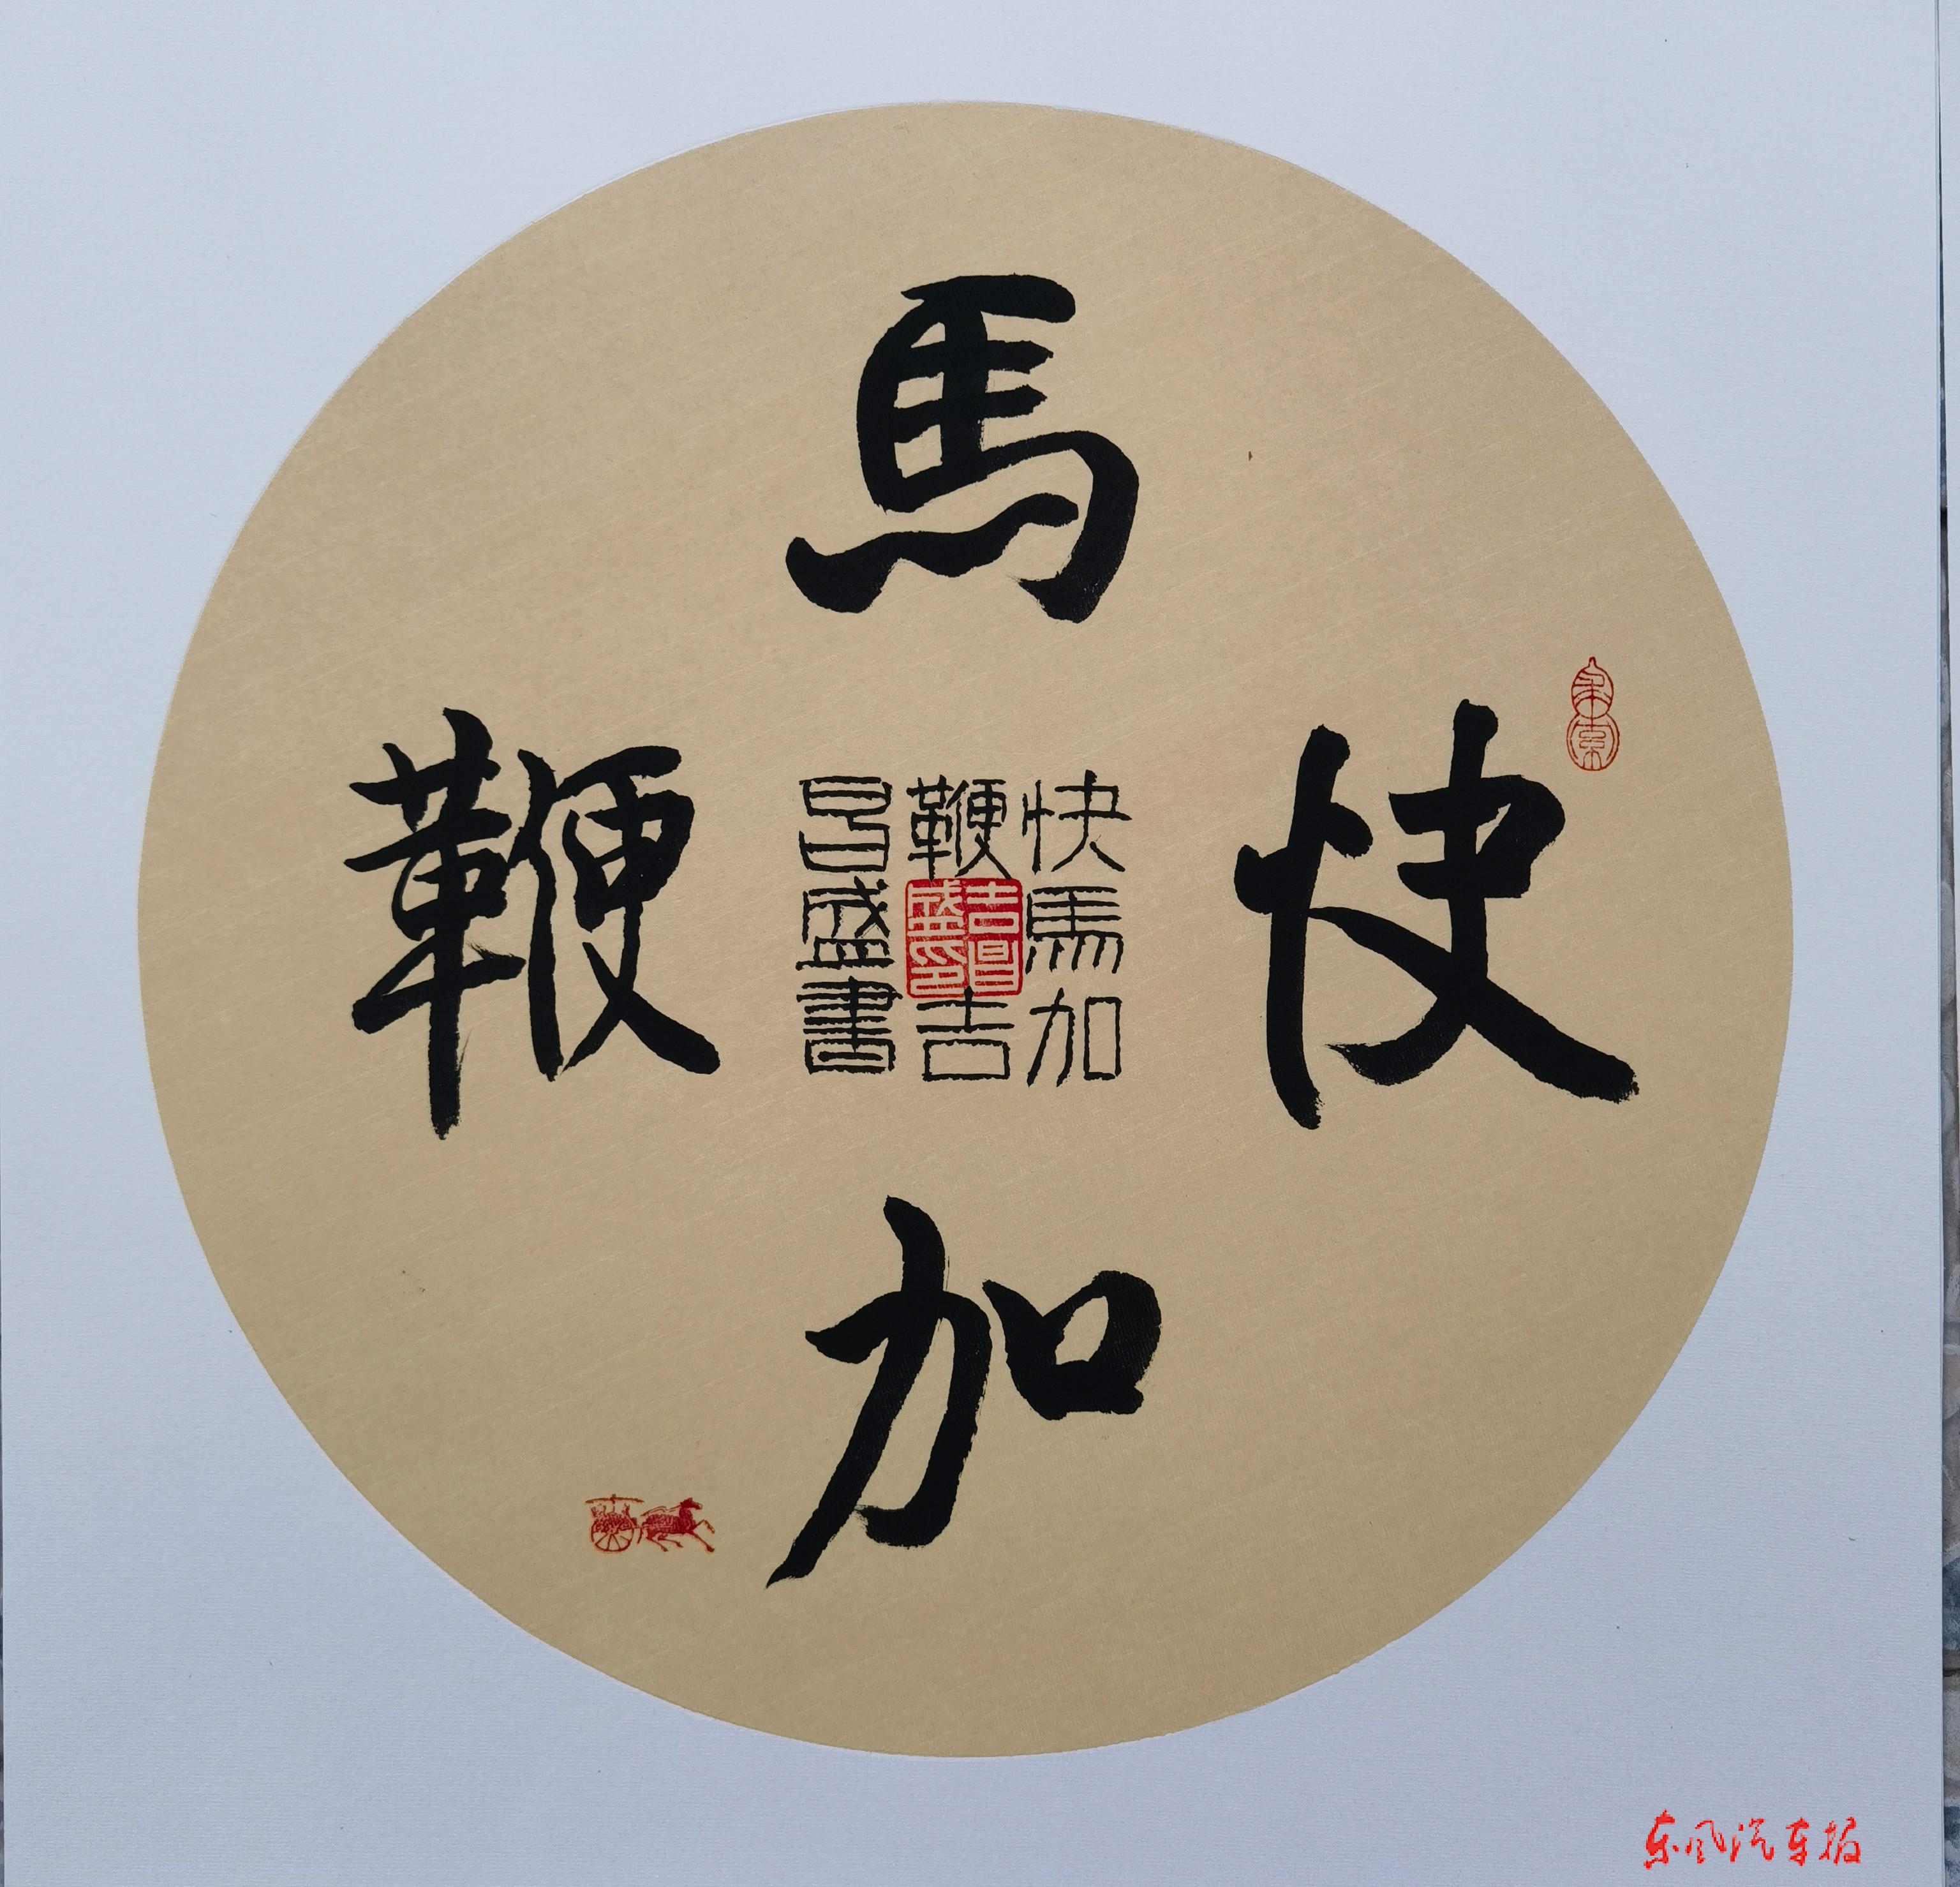 快
馬
加
鞭
快馬加
鞭吉
昌盛書
吉昌盛印
东风汽车报